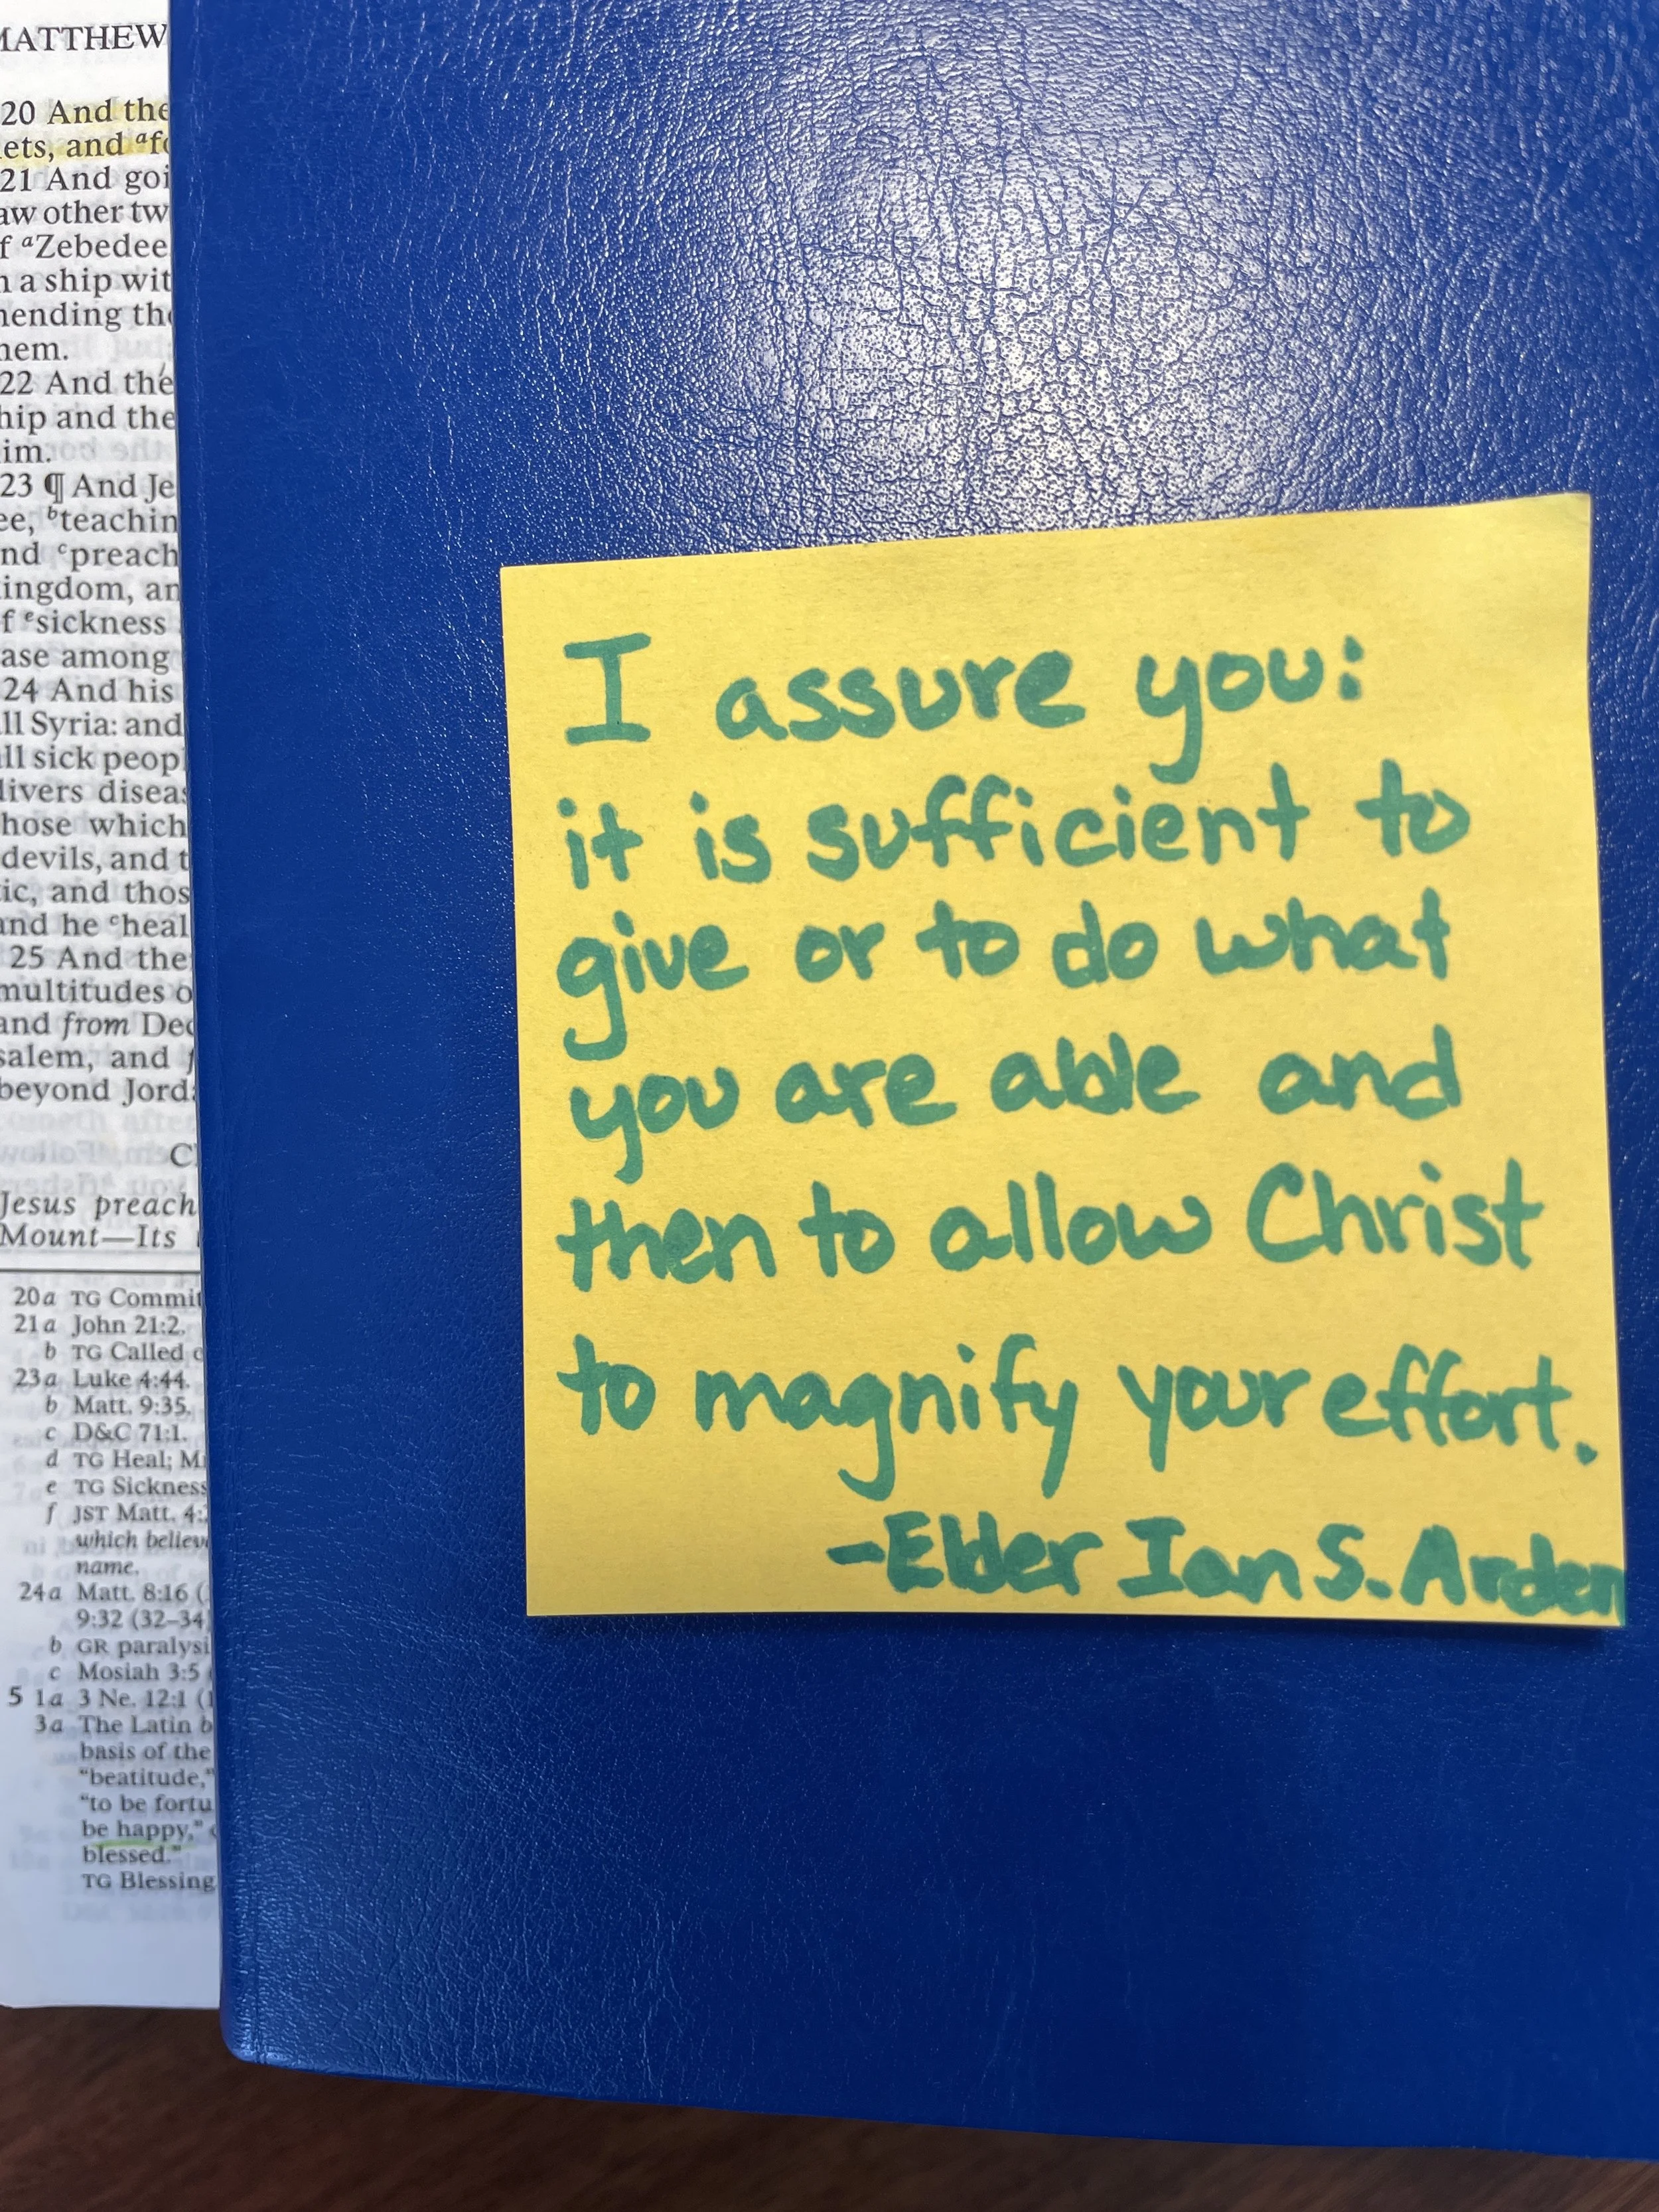 MATTHEW
20 And the
ets, and ᵃfo
21 And goi
aw other tw
f ᵃZebedee
n a ship wit
mending the
hem.
22 And the
hip and the
im.
23 ¶ And Je
ee, ᵇteachin
nd ᶜpreach
ingdom, an
f ᵉsickness
ase among
24 And his
ll Syria: and
ll sick peopl
livers diseas
hose which
devils, and t
ic, and thos
and he ᶜheal
25 And the
multitudes o
and from Dec
salem, and f
beyond Jord
C
Jesus preach
Mount—Its
20a TG Commit
21a John 21:2.
b TG Called
23a Luke 4:44.
b Matt. 9:35.
c D&C 71:1.
d TG Heal; M
e TG Sickness
f JST Matt. 4:
which believ
name.
24a Matt. 8:16 (
9:32 (32–34)
b GR paralysi
c Mosiah 3:5
5 1a 3 Ne. 12:1 (1
3a The Latin b
basis of the
"beatitude,"
"to be fortu
be happy,"
blessed."
TG Blessing
I assure you:
it is sufficient to
give or to do what
you are able and
then to allow Christ
to magnify your effort.
-Elder Ian S. Arden